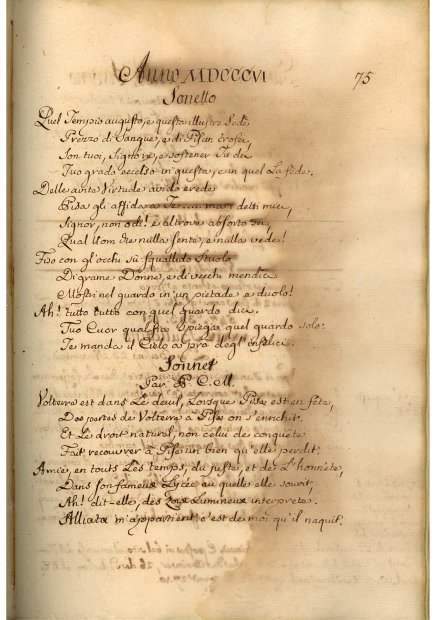 Anno MDCCCVI
75
Sonetto
Quel Tempio augusto, e questa illustre Sede
Prezzo di Sangue, e di Pisan trofei,
Son tuoi, Signore, e sostener Tu dei
Tuo grado eccelso in questa, e in quel La fede.
Delle avite Virtudi avido erede
Pisa gli affida a Te.... ma i detti miei,
Signor, non odi! e altrove absorto sei,
Qual Uom che nulla sente, e nulla vede!
Fiso con gl'occhi sù squallido Stuolo
Di grame Donne, e di vecchi mendici
Mostri nel guardo in'un pietade e duolo!
Ah! tutto tutto con quel guardo dici.
Tuo Cuor qual sia spiega quel guardo solo:
Te manda il Cielo a prò degl'infelici.
Sonnet
Par C. M.
Volterre est dans Le deuil, Lorsque Pise est en fete,
Des pertes de Volterre à Pise on s'enrichit.
Et Le droit naturel, non celui de conquête
Fait recouvrer à Pise un bien qu'elle perdit.
Amie, en touts Les temps, du juste, et de L'honnête,
Dans son fameux Lycée au quelle elle sourit,
Ah! dit-elle, des Loix Lumineux interprete.
Alliata m'appartient: c'est de moi qu'il naquit.